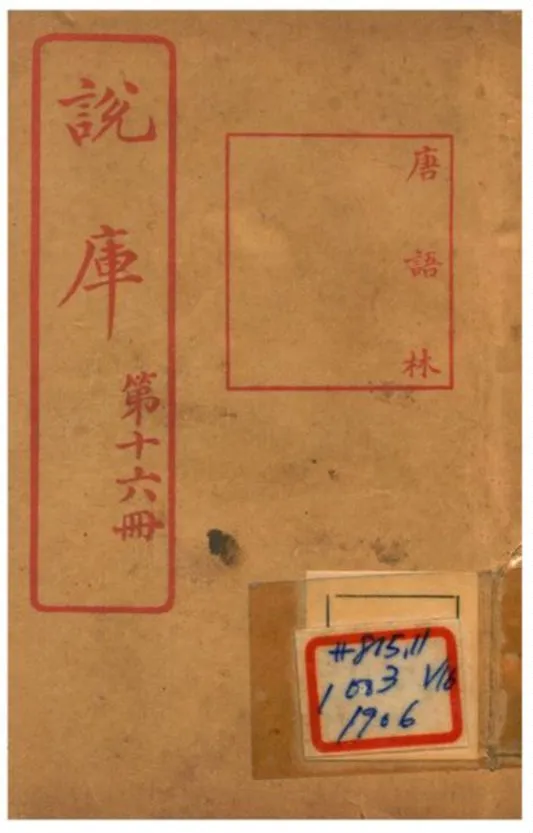 說庫
第十六冊
唐語林
#815,11
1003 V16
1906